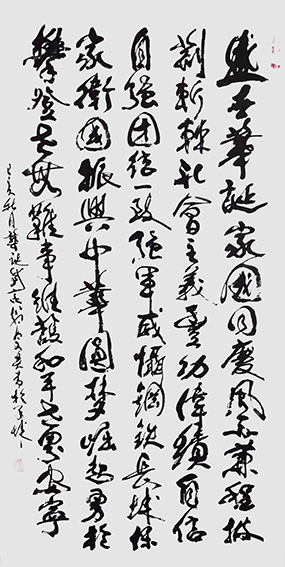 盛世華誕家國同慶風雨兼程披
荆斬棘社會主義豐功偉績自信
自强团結一致强軍威懾鋼鐵長城保
家衛國振興中華圓夢崛起勇於
攀登無畏維護和平世界安寧
己亥秋月華誕